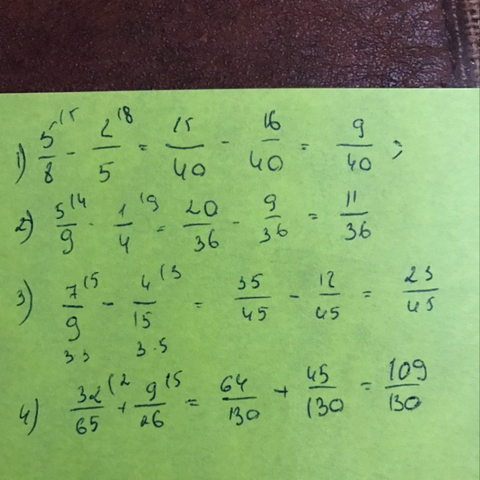 1) 5/8 (5 - 2/5 (8 = 25/40 - 16/40 = 9/40 ;
2) 5/9 (4 - 1/4 (9 = 20/36 - 9/36 = 11/36
3) 7/9 (5 - 4/15 (3 = 35/45 - 12/45 = 23/45
3·3 3·5
4) 32/65 (2 + 9/26 (5 = 64/130 + 45/130 = 109/130